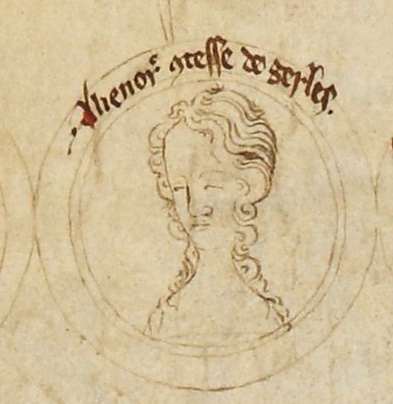 Alienor̃ ꝯtesse de gerles.